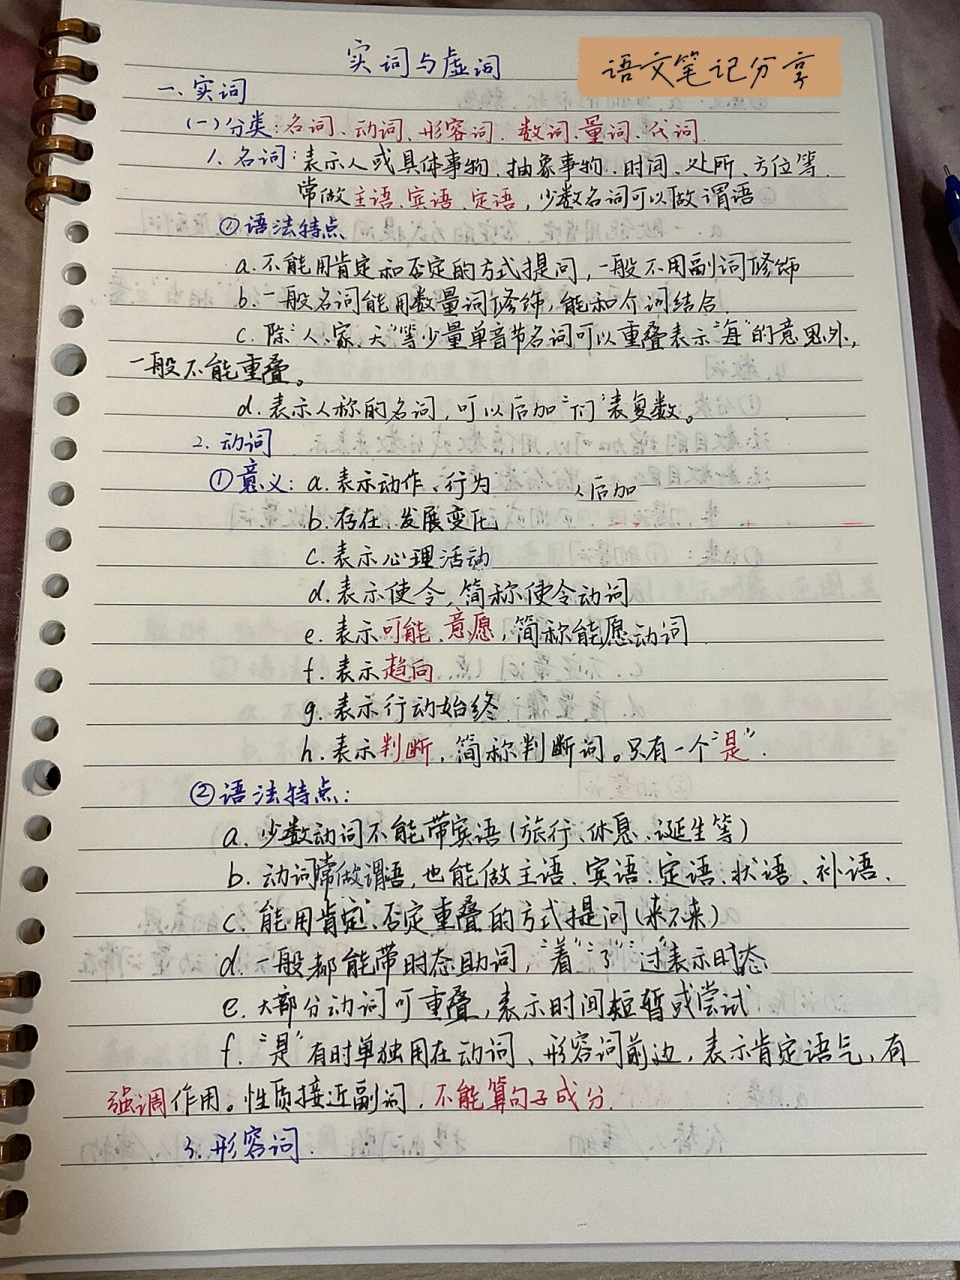 实词与虚词
语文笔记分享
一、实词
(一)分类:名词、动词、形容词、数词、量词、代词.
1. 名词:表示人或具体事物、抽象事物、时间、处所、方位等.
常做主语、宾语、定语,少数名词可以做谓语
①语法特点
a.不能用肯定和否定的方式提问,一般不用副词修饰
b.一般名词能用数量词修饰,能和介词结合.
c.除“人、家、天”等少量单音节名词可以重叠表示“每”的意思外,
一般不能重叠。
d.表示人称的名词,可以后加“们”表复数。
2.动词
①意义: a.表示动作、行为
后加
b.存在、发展变化
c.表示心理活动
d.表示使令,简称使令动词
e.表示可能、意愿,简称能愿动词
f.表示趋向
g.表示行动始终
h.表示判断,简称判断词。只有一个“是”.
②语法特点:
a.少数动词不能带宾语(旅行、休息、诞生等)
b.动词常做谓语,也能做主语、宾语、定语、状语、补语.
c.能用肯定、否定重叠的方式提问(来不来)
d.一般都能带时态助词,“着”“了”“过”表示时态
e.大部分动词可重叠,表示时间短暂或尝试
f.“是”有时单独用在动词、形容词前边,表示肯定语气,有
强调作用。性质接近副词,不能算句子成分.
3.形容词.